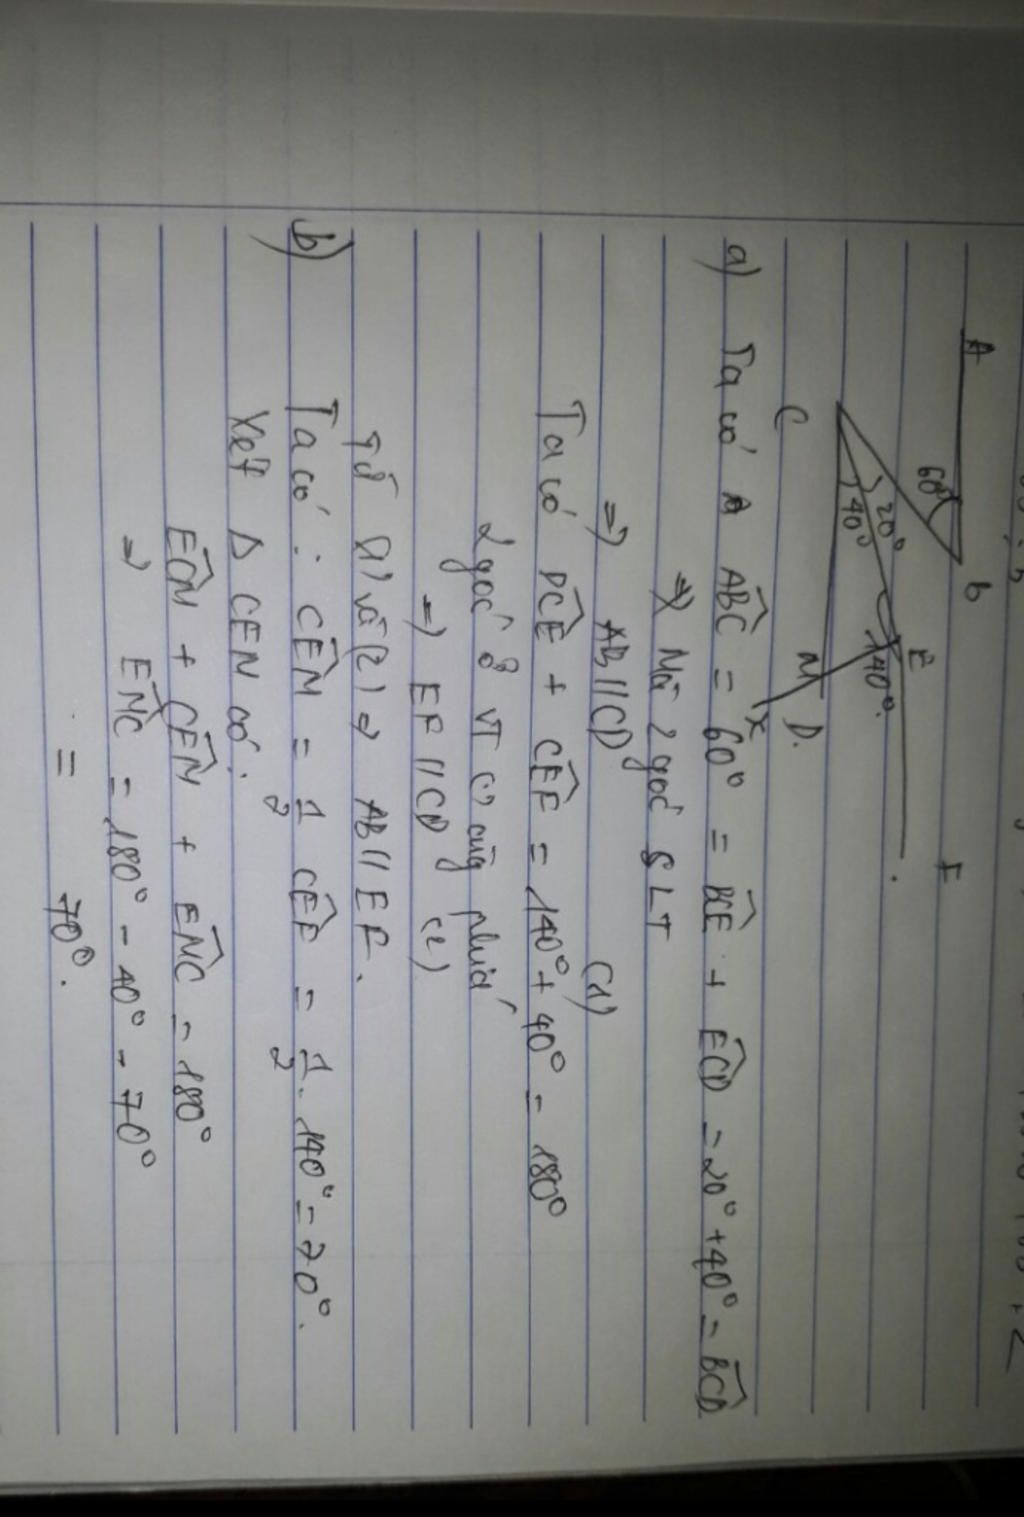 A
B
60°
20°
E
F
140°.
40°
C
M
D.
x
a) Ta có ABC = 60° = BCE + ECD = 20° + 40° = BCD
=> Mà 2 góc SLT
=> AB // CD (1)
Ta có DCE + CEF = 140° + 40° = 180°
2 góc ở VT cùng phía
=> EF // CD (2)
Từ (1) và (2) => AB // EF.
b) Ta có : CEM = 1/2 CEF = 1/2 . 140° = 70°.
Xét Δ CEM có:
ECM + CEM + EMC = 180°
=> EMC = 180° - 40° - 70°
= 70°.